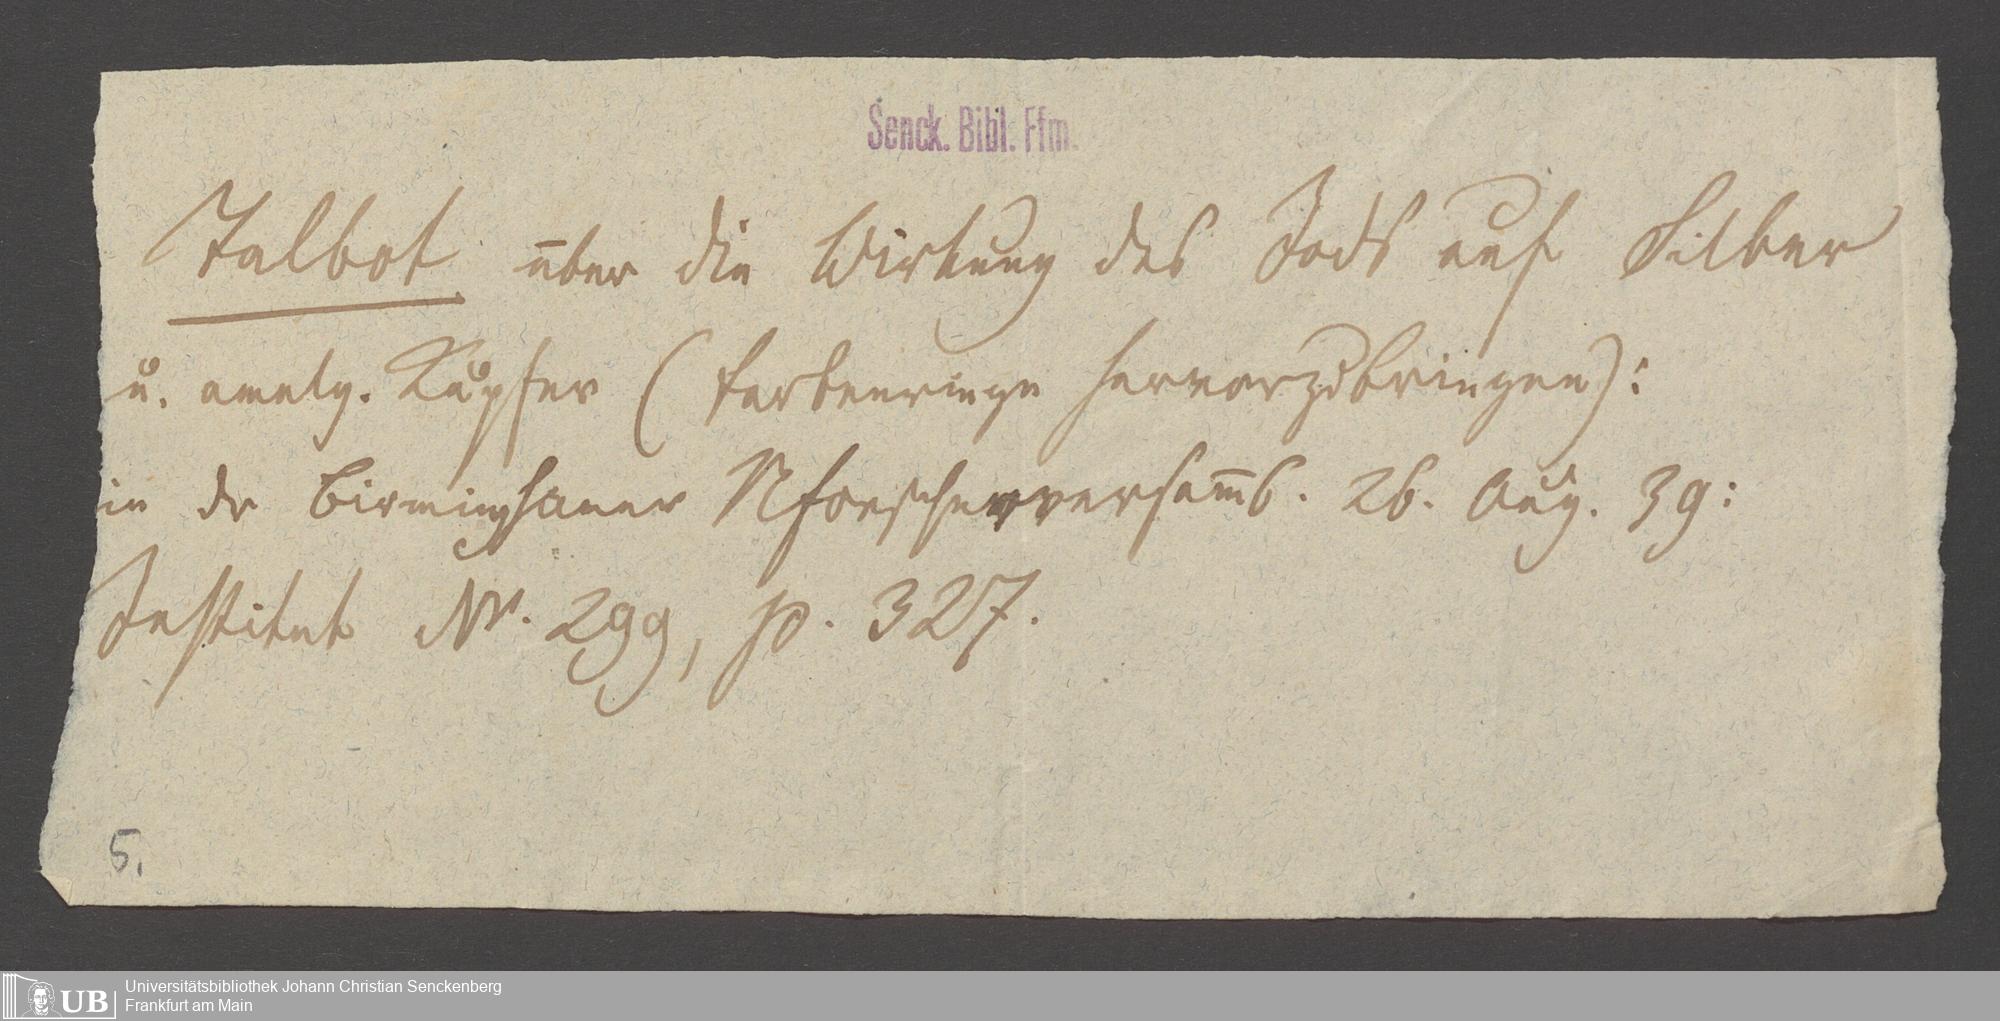 Senck. Bibl. Ffm.
Talbot über die Wirkung des Jods auf Silber
u. amalg. Kupfer (Farbenringe hervorzubringen):
in dr Birminghamer Nforscherversamml. 26. Aug. 39:
Institut Nr. 299, p. 327.
5.
UB
Universitätsbibliothek Johann Christian Senckenberg
Frankfurt am Main